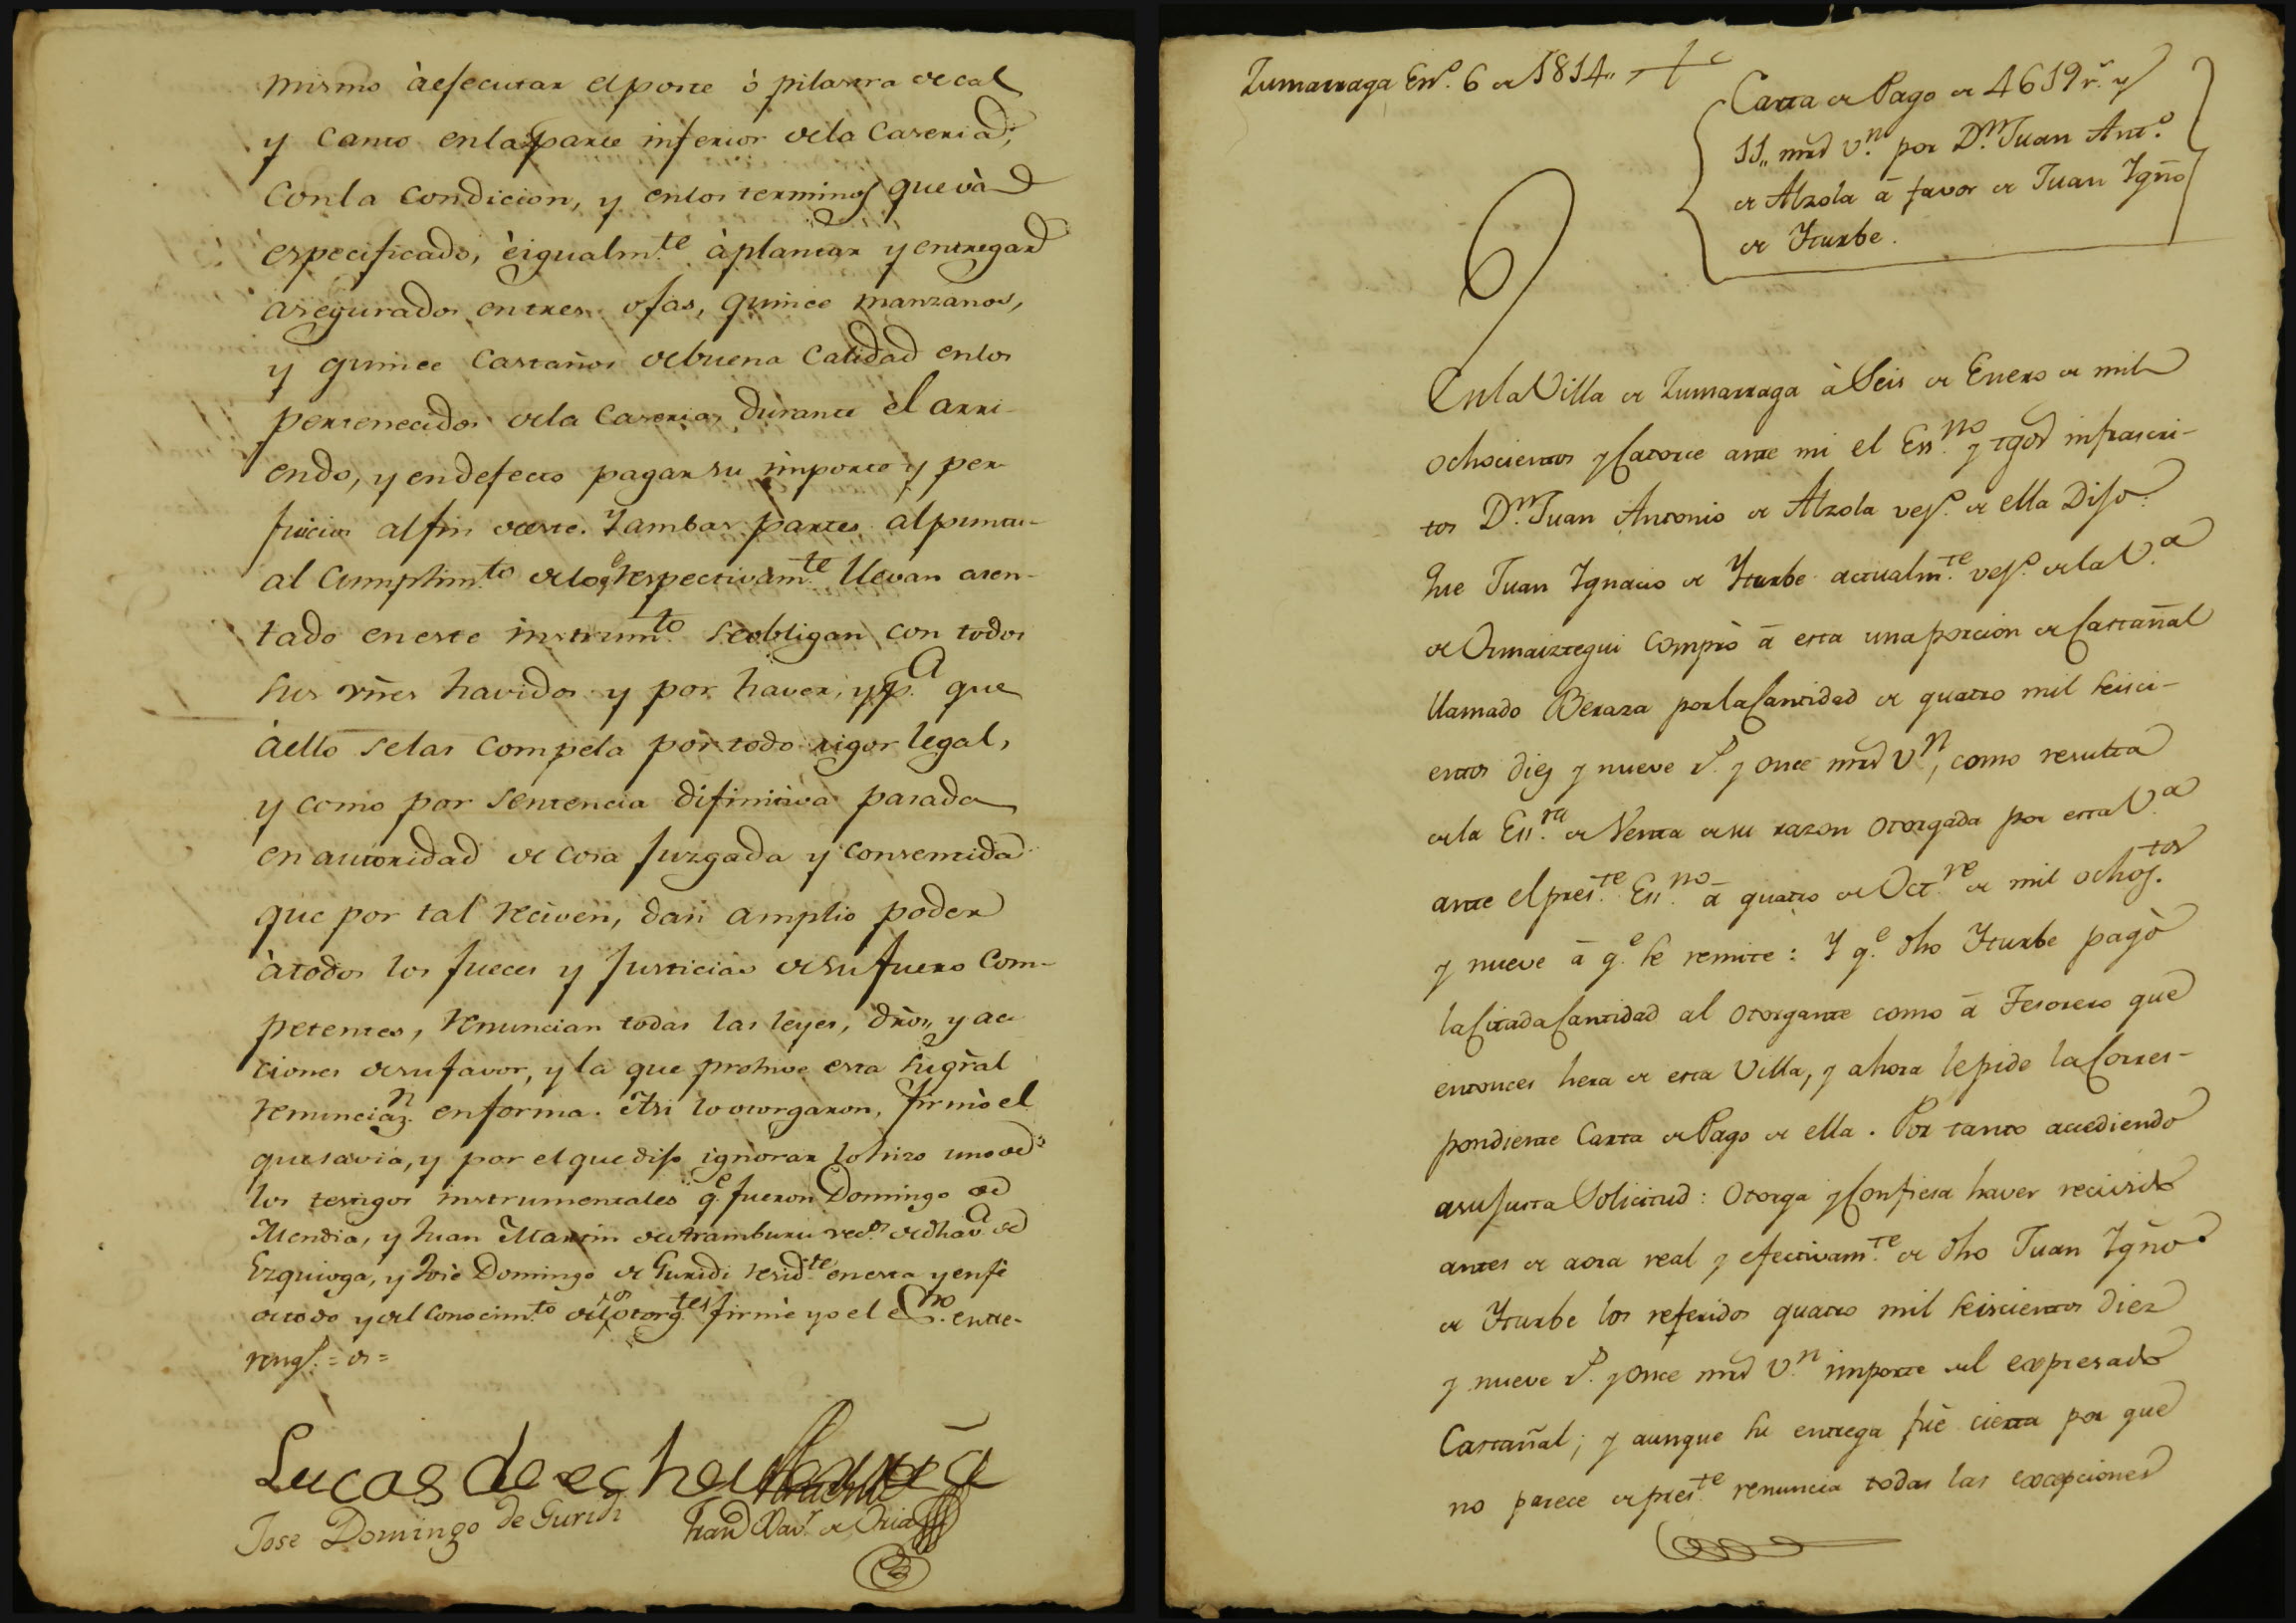 mismo à ejecutar el poste ò pilastra de cal
y canto en la parte inferior de la Caseria,
con la condicion, y en los terminos que và
especificado, è igualm.te à plantar y entregar
asegurados en tres ojas, quince manzanos,
y quince Castaños de buena Calidad en los
pertenecidos de la Caseria, durante èl arri-
endo, y en defecto pagar su importe y per
juicios al fin de este. Y ambas partes àl puntu-
al Cumplim.to de lo q.e respectivam.te llevan asen-
tado en este instrum.to se obligan con todos
sus vñes havidos y por haver, y p.a que
à ello se las compela por todo rigor legal,
y como por sentencia difinitiva pasada
en autoridad de cosa Juzgada y consentida
que por tal reciven, dan amplio poder
à todos los Jueces y Justicias de su fuero Com-
petentes, renuncian todas las leyes, dros, y ac
ciones de su favor, y la que prohive esta su gral
renunciaz.n en forma. Asi lo otorgaron, firmò el
que savia, y por el que dijo ignorar lo hizo uno de
los testigos instrumentales q.e fueron Domingo de
Mendia, y Juan Martin de Aramburu vec.s de dha V.a de
Ezquioga, y Josè Domingo de Guridi resid.te en esta y en fè
de todo y del conocim.to de los otorg.tes firmè yo el Es.no entre-
rengl.s = os =
Lucas de echeverria
Jose Domingo de Guridi
Fran.co Xav.r de Oria
Zumarraga En.o 6 de 1814,,
Carta de Pago de 4619 r.s y
11,, mrd v.n por D.n Juan Ant.o
de Alzola à favor de Juan Ygño
de Yturbe.
En la Villa de Zumarraga à Seis de Enero de mil
ochocientos y Catorce ante mi el Ess.no y tgos infrascri-
tos D.n Juan Antonio de Alzola vez.o de ella Dijo:
Que Juan Ygnacio de Yturbe actualm.te vez.o de la V.a
de Ormaiztegui comprò à esta una porcion de Castañal
llamado Beraza por la Cantidad de quatro mil seisci-
entos diez y nueve r.s y once mrd v.n, como resulta
de la Ess.ra de Venta de su razon otorgada por esta V.a
ante el pres.te Ess.no à quatro de Oct.re de mil ochoz.tos
y nueve à q.e se remite: Y q.e dho Yturbe pagò
la Citada Cantidad al otorgante como à Tesorero que
entonces hera de esta Villa, y ahora le pide la Corres-
pondiente Carta de Pago de ella. Por tanto accediendo
a su justa Solicitud: Otorga y Confiesa haver recivido
antes de aora real y efectivam.te de dho Juan Ygño
de Yturbe los referidos quatro mil seiscientos diez
y nueve r.s y once mrd v.n importe del expresado
Castañal; y aunque su entrega fuè cierta por que
no parece de pres.te renuncia todas las excepciones